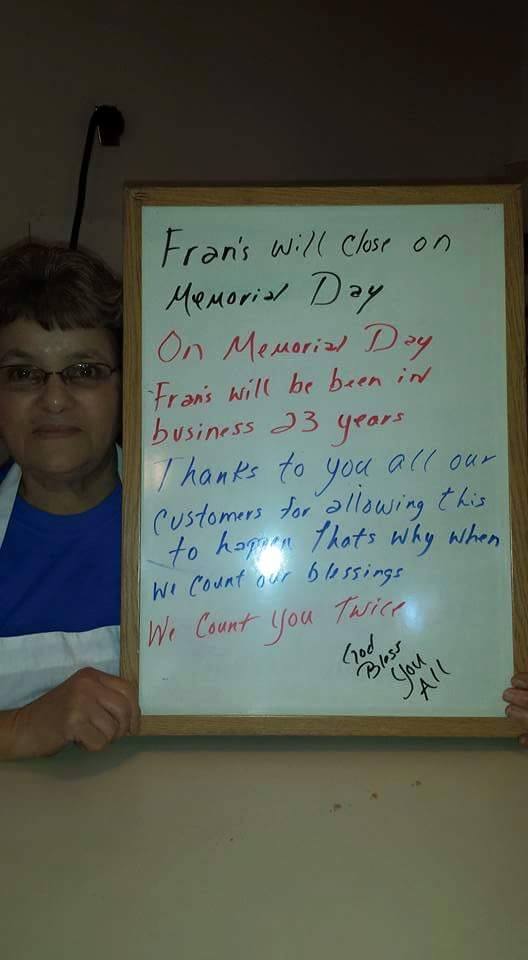 Fran's will close on
Memorial Day
On Memorial Day
Fran's will be been in
business 23 years
Thanks to you all our
customers for allowing this
to happen Thats why when
we count our blessings
We Count you Twice
God
Bless
You
All